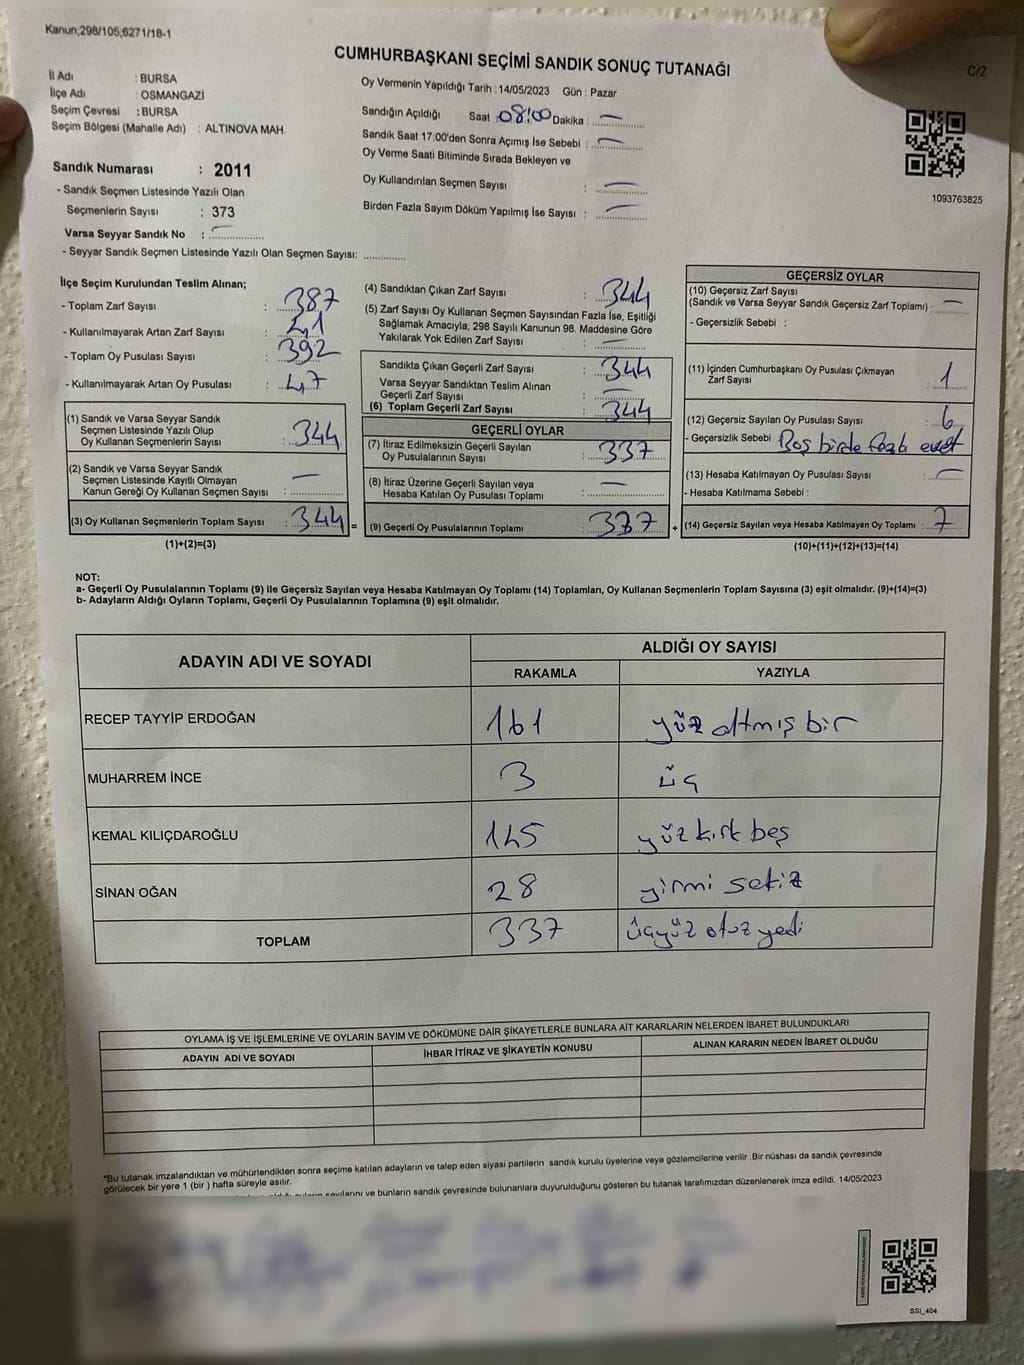 Kanun;298/105;6271/18-1
CUMHURBAŞKANI SEÇİMİ SANDIK SONUÇ TUTANAĞI
C/2
İl Adı : BURSA
İlçe Adı : OSMANGAZİ
Seçim Çevresi : BURSA
Seçim Bölgesi (Mahalle Adı) : ALTINOVA MAH.
Oy Vermenin Yapıldığı Tarih : 14/05/2023 Gün : Pazar
Sandığın Açıldığı Saat : 08:00 Dakika : —
Sandık Saat 17:00'den Sonra Açımış İse Sebebi : —
Oy Verme Saati Bitiminde Sırada Bekleyen ve
Oy Kullandırılan Seçmen Sayısı : —
Birden Fazla Sayım Döküm Yapılmış İse Sayısı : —
1093763825
Sandık Numarası : 2011
- Sandık Seçmen Listesinde Yazılı Olan
Seçmenlerin Sayısı : 373
Varsa Seyyar Sandık No : —
- Seyyar Sandık Seçmen Listesinde Yazılı Olan Seçmen Sayısı: ..............
İlçe Seçim Kurulundan Teslim Alınan;
- Toplam Zarf Sayısı : 387
- Kullanılmayarak Artan Zarf Sayısı : 41
- Toplam Oy Pusulası Sayısı : 392
- Kullanılmayarak Artan Oy Pusulası : 47
(1) Sandık ve Varsa Seyyar Sandık
Seçmen Listesinde Yazılı Olup
Oy Kullanan Seçmenlerin Sayısı : 344
(2) Sandık ve Varsa Seyyar Sandık
Seçmen Listesinde Kayıtlı Olmayan
Kanun Gereği Oy Kullanan Seçmen Sayısı : —
(3) Oy Kullanan Seçmenlerin Toplam Sayısı : 344 =
(1)+(2)=(3)
(4) Sandıktan Çıkan Zarf Sayısı : 344
(5) Zarf Sayısı Oy Kullanan Seçmen Sayısından Fazla İse, Eşitliği
Sağlamak Amacıyla; 298 Sayılı Kanunun 98. Maddesine Göre
Yakılarak Yok Edilen Zarf Sayısı : —
Sandıkta Çıkan Geçerli Zarf Sayısı : 344
Varsa Seyyar Sandıktan Teslim Alınan
Geçerli Zarf Sayısı : —
(6) Toplam Geçerli Zarf Sayısı : 344
GEÇERLİ OYLAR
(7) İtiraz Edilmeksizin Geçerli Sayılan
Oy Pusulalarının Sayısı : 337
(8) İtiraz Üzerine Geçerli Sayılan veya
Hesaba Katılan Oy Pusulası Toplamı : —
(9) Geçerli Oy Pusulalarının Toplamı : 337 +
GEÇERSİZ OYLAR
(10) Geçersiz Zarf Sayısı
(Sandık ve Varsa Seyyar Sandık Geçersiz Zarf Toplamı) : —
- Geçersizlik Sebebi :
(11) İçinden Cumhurbaşkanı Oy Pusulası Çıkmayan
Zarf Sayısı : 1
(12) Geçersiz Sayılan Oy Pusulası Sayısı : 6
- Geçersizlik Sebebi Boş birde fazla evet
(13) Hesaba Katılmayan Oy Pusulası Sayısı : —
- Hesaba Katılmama Sebebi :
(14) Geçersiz Sayılan veya Hesaba Katılmayan Oy Toplamı : 7
(10)+(11)+(12)+(13)=(14)
NOT:
a- Geçerli Oy Pusulalarının Toplamı (9) ile Geçersiz Sayılan veya Hesaba Katılmayan Oy Toplamı (14) Toplamları, Oy Kullanan Seçmenlerin Toplam Sayısına (3) eşit olmalıdır. (9)+(14)=(3)
b- Adayların Aldığı Oyların Toplamı, Geçerli Oy Pusulalarının Toplamına (9) eşit olmalıdır.
ADAYIN ADI VE SOYADI
ALDIĞI OY SAYISI
RAKAMLA YAZIYLA
RECEP TAYYİP ERDOĞAN 161 yüz altmış bir
MUHARREM İNCE 3 üç
KEMAL KILIÇDAROĞLU 145 yüz kırk beş
SİNAN OĞAN 28 yirmi sekiz
TOPLAM 337 üçyüz otuz yedi
OYLAMA İŞ VE İŞLEMLERİNE VE OYLARIN SAYIM VE DÖKÜMÜNE DAİR ŞİKAYETLERLE BUNLARA AİT KARARLARIN NELERDEN İBARET BULUNDUKLARI
ADAYIN ADI VE SOYADI İHBAR İTİRAZ VE ŞİKAYETİN KONUSU ALINAN KARARIN NEDEN İBARET OLDUĞU
*Bu tutanak imzalandıktan ve mühürlendikten sonra seçime katılan adayların ve talep eden siyasi partilerin sandık kurulu üyelerine veya gözlemcilerine verilir. Bir nüshası da sandık çevresinde
görülecek bir yere 1 (bir) hafta süreyle asılır.
sayılarını ve bunların sandık çevresinde bulunanlara duyurulduğunu gösteren bu tutanak tarafımızdan düzenlenerek imza edildi. 14/05/2023
SSI_404